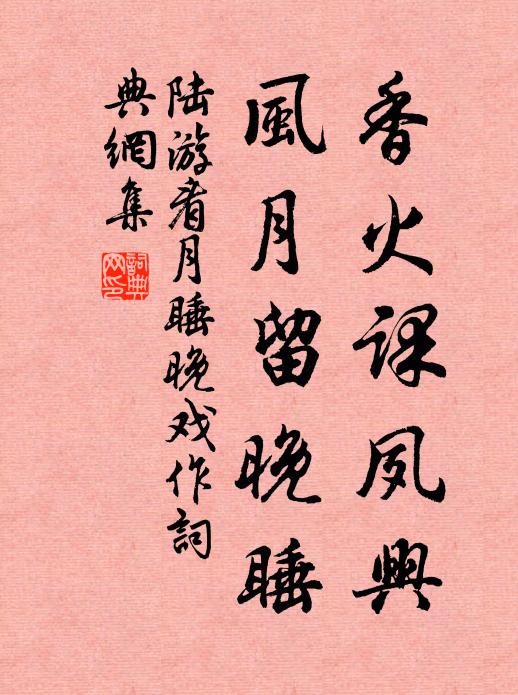 香火課夙興
風月留晚睡
陆游看月睡晚戏作詞
典網集
詞典網印